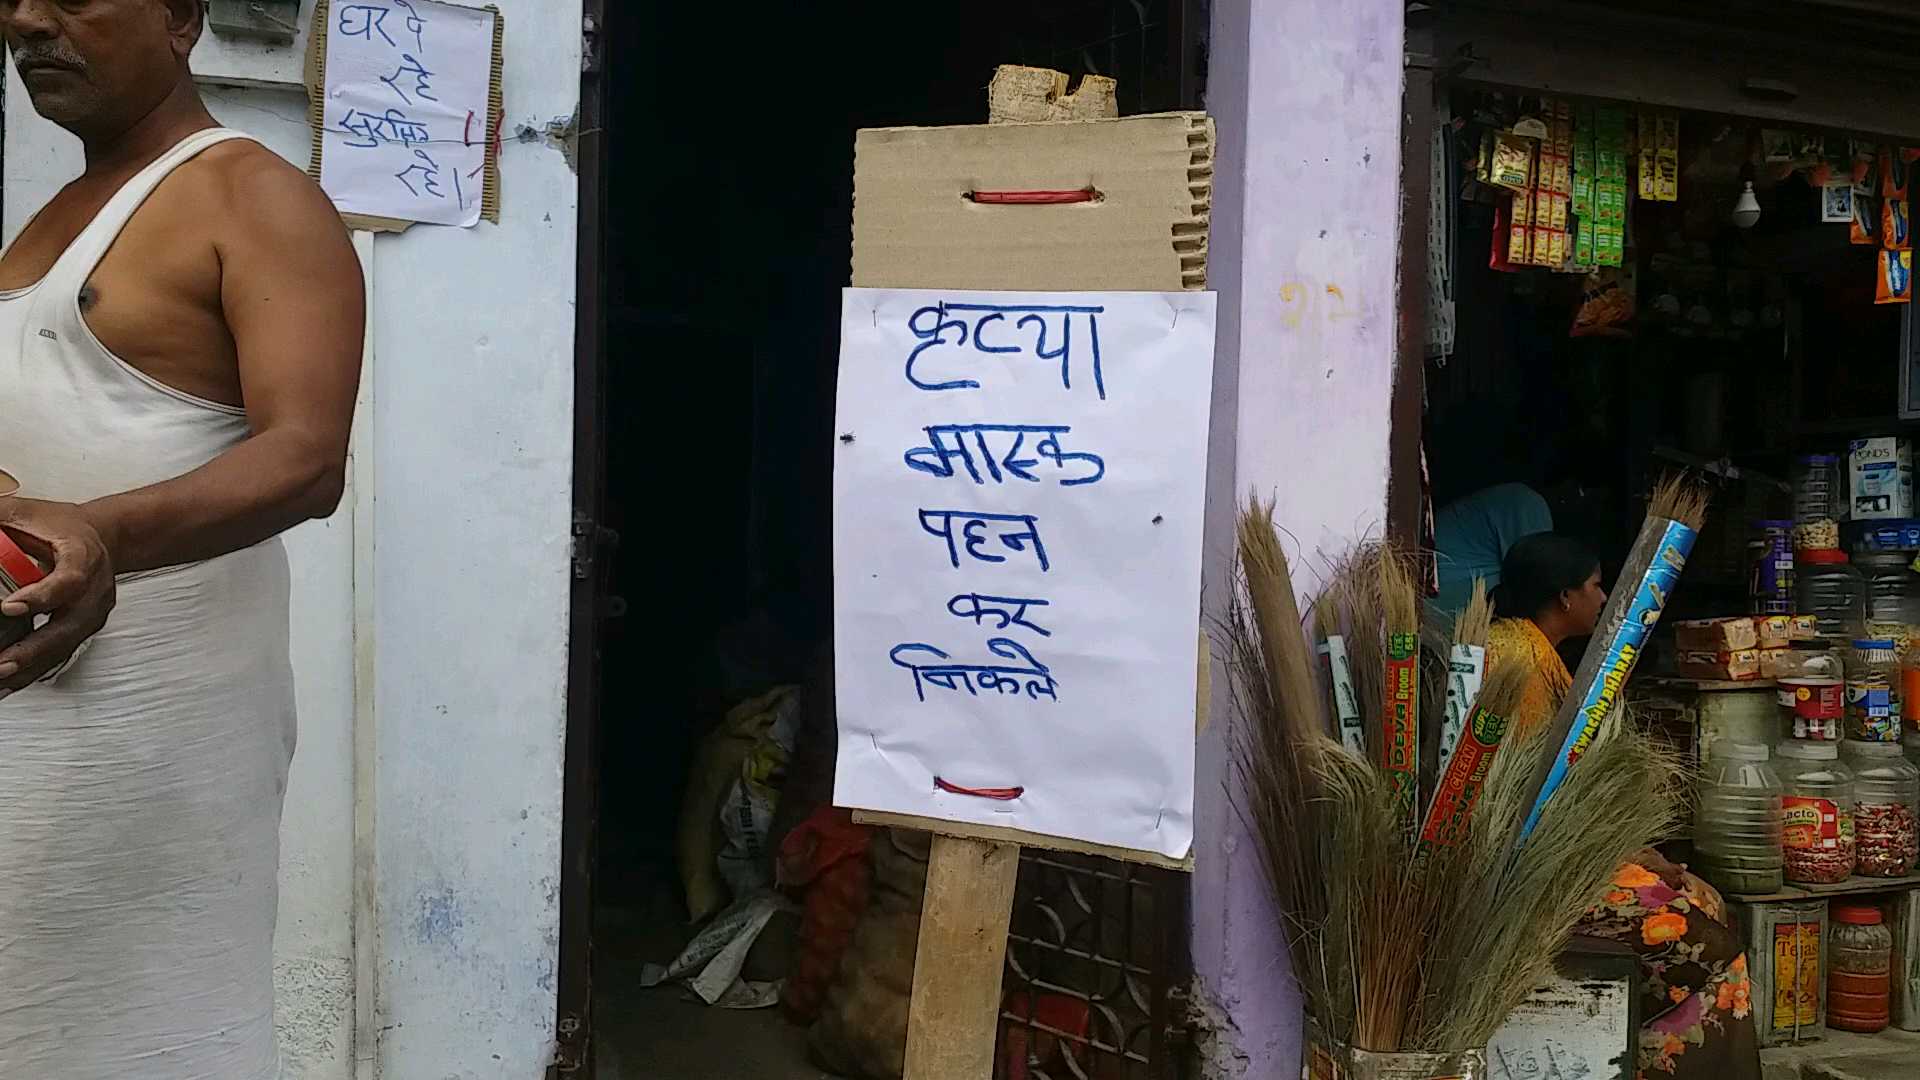 घर पे
रहे
सुरक्षित
रहे
कृटया
मास्क
पहन
कर
निकले
POND'S
SWACHH BHARAT
DEVA Broom
CLEAN
Broom
Lacto